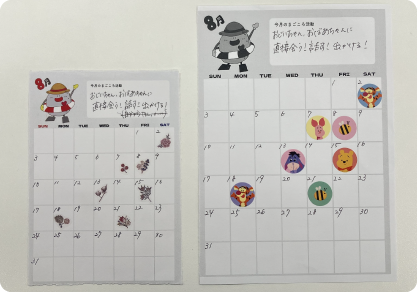 8月
今月のまごころ活動
おじいちゃん、おばあちゃんに
直接会う!話す!出かける!
SUN MON TUE WED THU FRI SAT
1 2
3 4 5 6 7 8 9
10 11 12 13 14 15 16
17 18 19 20 21 22 23
24 25 26 27 28 29 30
31
8月
今月のまごころ活動
おじいちゃん、おばあちゃんに
直接会う!話す!出かける!
SUN MON TUE WED THU FRI SAT
1 2
3 4 5 6 7 8 9
10 11 12 13 14 15 16
17 18 19 20 21 22 23
24 25 26 27 28 29 30
31